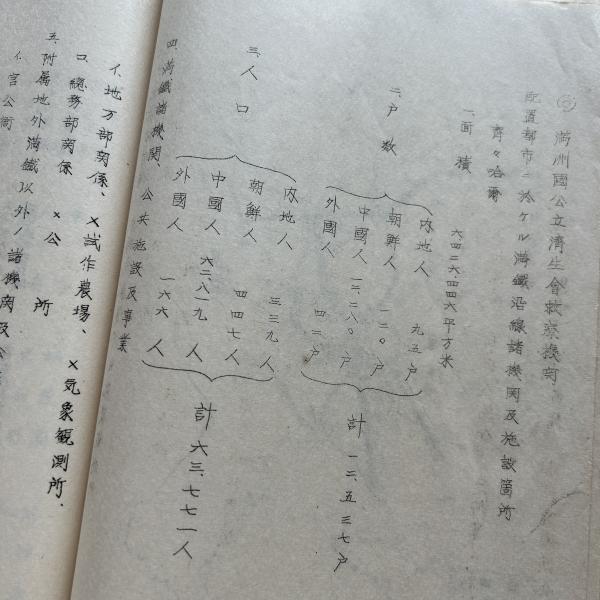 満洲國公立濟生會救療機関
配置都市ニ於ケル満鐵沿線諸機関及施設箇所
齊々哈爾
一、面積 六四二六四四六平方米
二、戸数
内地人 九五戸
朝鮮人 一二〇戸
中國人 一二、二八〇戸
外國人 四二戸
計 一二、五三七戸
三、人口
内地人 三三九人
朝鮮人 四四七人
中國人 六二、八一九人
外國人 一六六人
計 六三、七七一人
四、満鐵諸機関、公共施設及事業
イ、地方部関係、×試作農場、×気象観測所、
ロ、総務部関係 ×公所
五、附属地外満鐵以外ノ諸機関及公
イ、官公衙